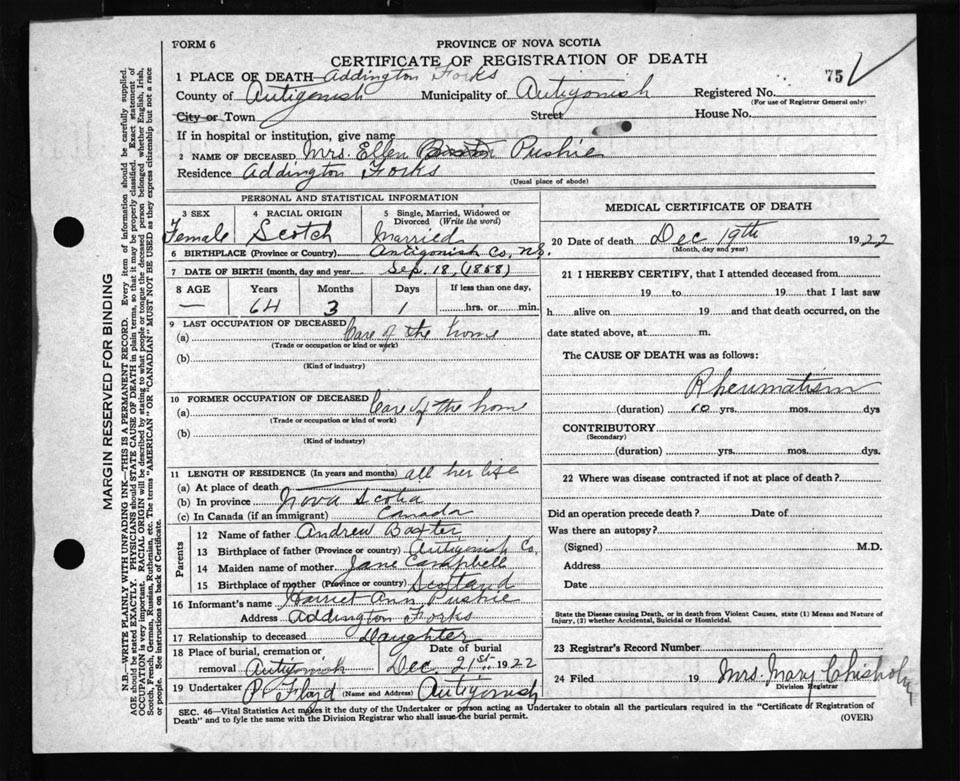 FORM 6
PROVINCE OF NOVA SCOTIA
CERTIFICATE OF REGISTRATION OF DEATH
75
1 PLACE OF DEATH Addington Forks
County of Antigonish Municipality of Antigonish Registered No.
(For use of Registrar General only)
City or Town Street House No.
If in hospital or institution, give name
2 NAME OF DECEASED Mrs. Ellen Pushie
Residence Addington Forks
(Usual place of abode)
PERSONAL AND STATISTICAL INFORMATION
3 SEX 4 RACIAL ORIGIN 5 Single, Married, Widowed or Divorced (Write the word)
Female Scotch Married
6 BIRTHPLACE (Province or Country) Antigonish Co, N.S.
7 DATE OF BIRTH (month, day and year Sep. 18, (1858)
8 AGE Years Months Days If less than one day,
— 64 3 1 hrs. or min.
9 LAST OCCUPATION OF DECEASED
(a) Care of the home
(Trade or occupation or kind or work)
(b)
(Kind of industry)
10 FORMER OCCUPATION OF DECEASED
(a) Care of the home
(Trade or occupation or kind of work)
(b)
(Kind of industry)
11 LENGTH OF RESIDENCE (In years and months) all her life
(a) At place of death
(b) In province Nova Scotia
(c) In Canada (if an immigrant) Canada
Parents
12 Name of father Andrew Baxter
13 Birthplace of father (Province or country) Antigonish Co,
14 Maiden name of mother Jane Campbell
15 Birthplace of mother (Province or country) Scotland
16 Informant's name Harriet Ann Pushie
Address Addington Forks
17 Relationship to deceased Daughter
18 Place of burial, cremation or removal Antigonish Date of burial Dec 21st 1922
19 Undertaker P. Floyd (Name and Address) Antigonish
MEDICAL CERTIFICATE OF DEATH
20 Date of death Dec 19th 1922
(Month, day and year)
21 I HEREBY CERTIFY, that I attended deceased from
19 to 19 that I last saw
h alive on 19 and that death occurred, on the
date stated above, at m.
The CAUSE OF DEATH was as follows:
Rheumatism
(duration) 10 yrs. mos. dys
CONTRIBUTORY
(Secondary)
(duration) yrs. mos. dys.
22 Where was disease contracted if not at place of death?
Did an operation precede death? Date of
Was there an autopsy?
(Signed) M.D.
Address
Date
State the Disease causing Death, or in death from Violent Causes, state (1) Means and Nature of
Injury, (2) whether Accidental, Suicidal or Homicidal.
23 Registrar's Record Number
24 Filed 19 Mrs. Mary Chisholm
Division Registrar
SEC. 46—Vital Statistics Act makes it the duty of the Undertaker or person acting as Undertaker to obtain all the particulars required in the "Certificate of Registration of
Death" and to fyle the same with the Division Registrar who shall issue the burial permit.
(OVER)
MARGIN RESERVED FOR BINDING
N.B.—WRITE PLAINLY WITH UNFADING INK—THIS IS A PERMANENT RECORD. Every item of information should be carefully supplied.
AGE should be stated EXACTLY. PHYSICIANS should STATE CAUSE OF DEATH in plain terms, so that it may be properly classified. Exact statement of
OCCUPATION is very important. RACIAL ORIGIN will be described by stating to what people or tongue the deceased person belonged whether English, Irish,
Scotch, French, German, Russian, Ruthenian, etc. The terms "AMERICAN" OR "CANADIAN" MUST NOT BE USED as they express citizenship but not a race
or people. See instructions on back of Certificate.